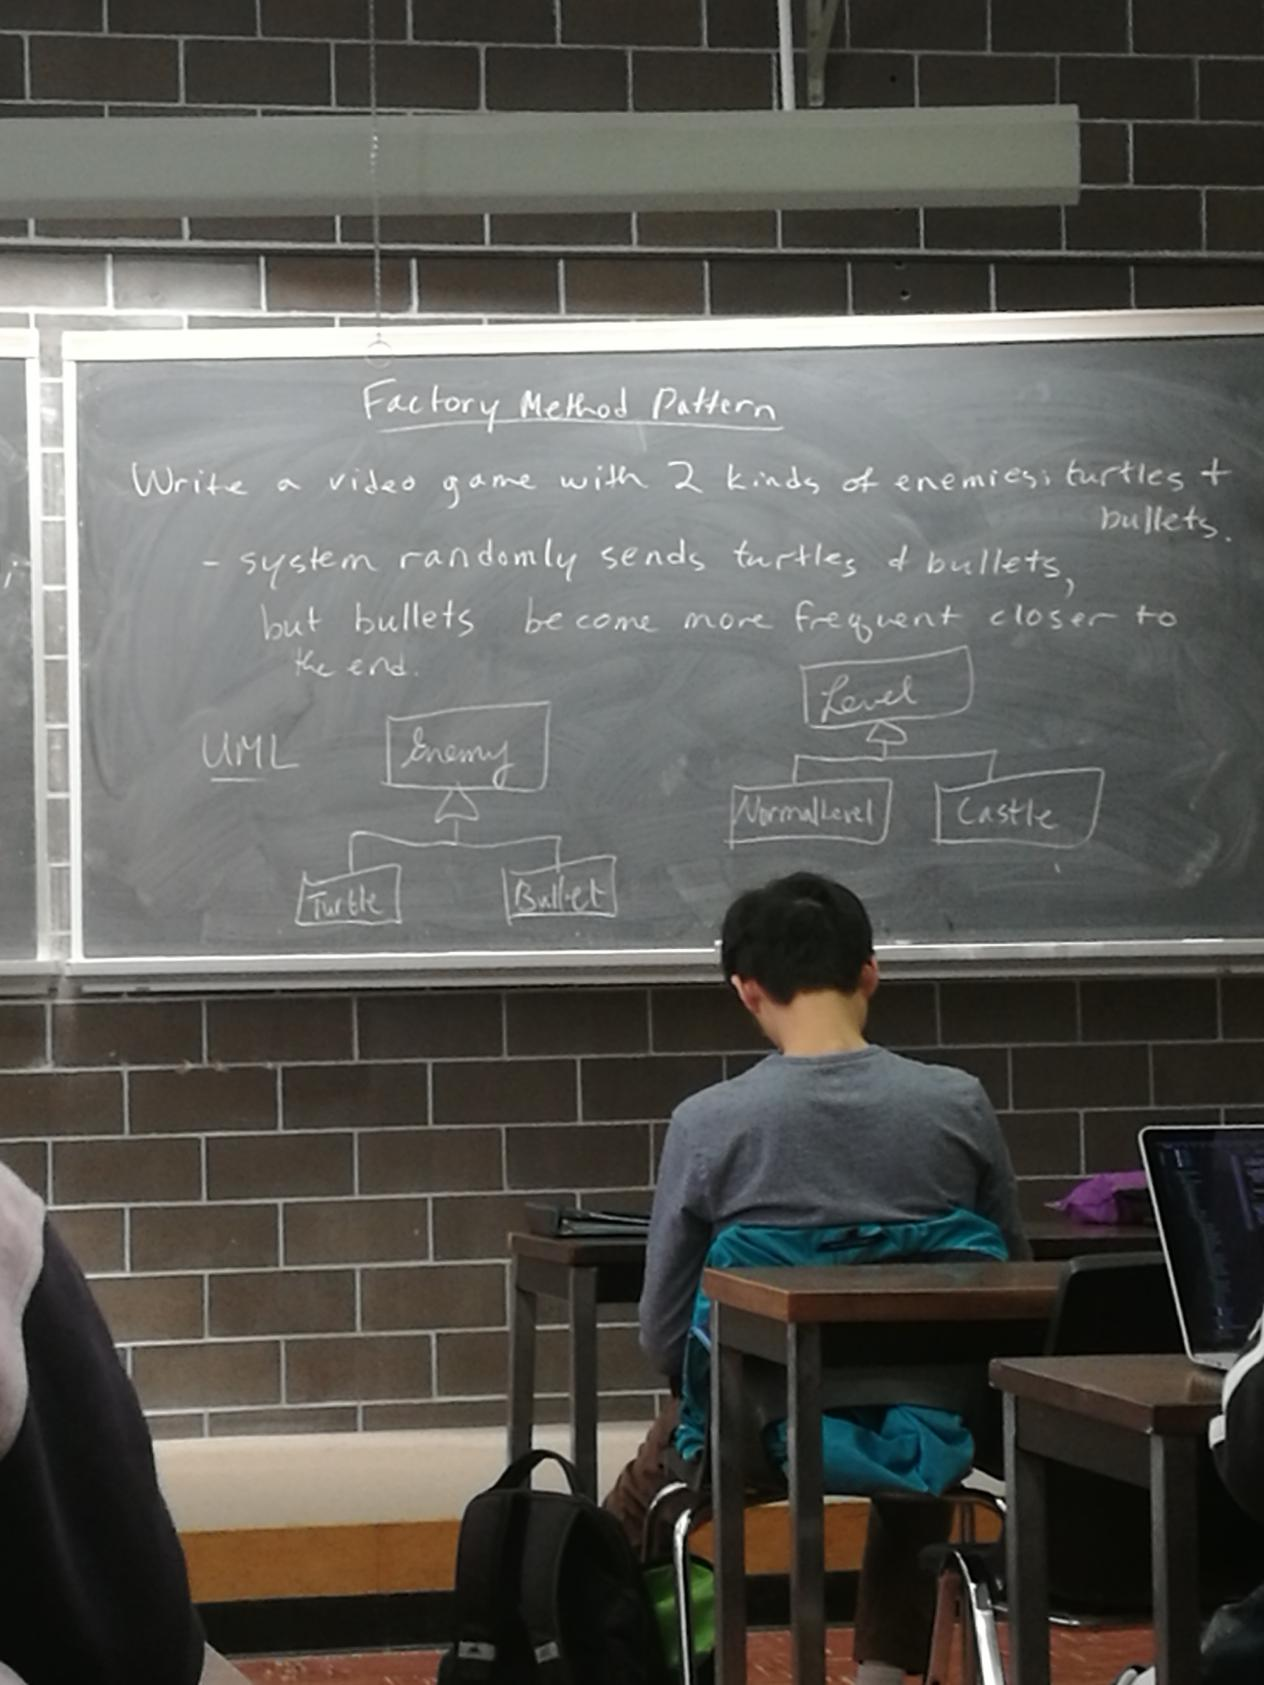 Factory Method Pattern
Write a video game with 2 kinds of enemies: turtles +
bullets.
- system randomly sends turtles + bullets,
but bullets become more frequent closer to
the end.
Level
UML
Enemy
NormalLevel
Castle
Turtle
Bullet